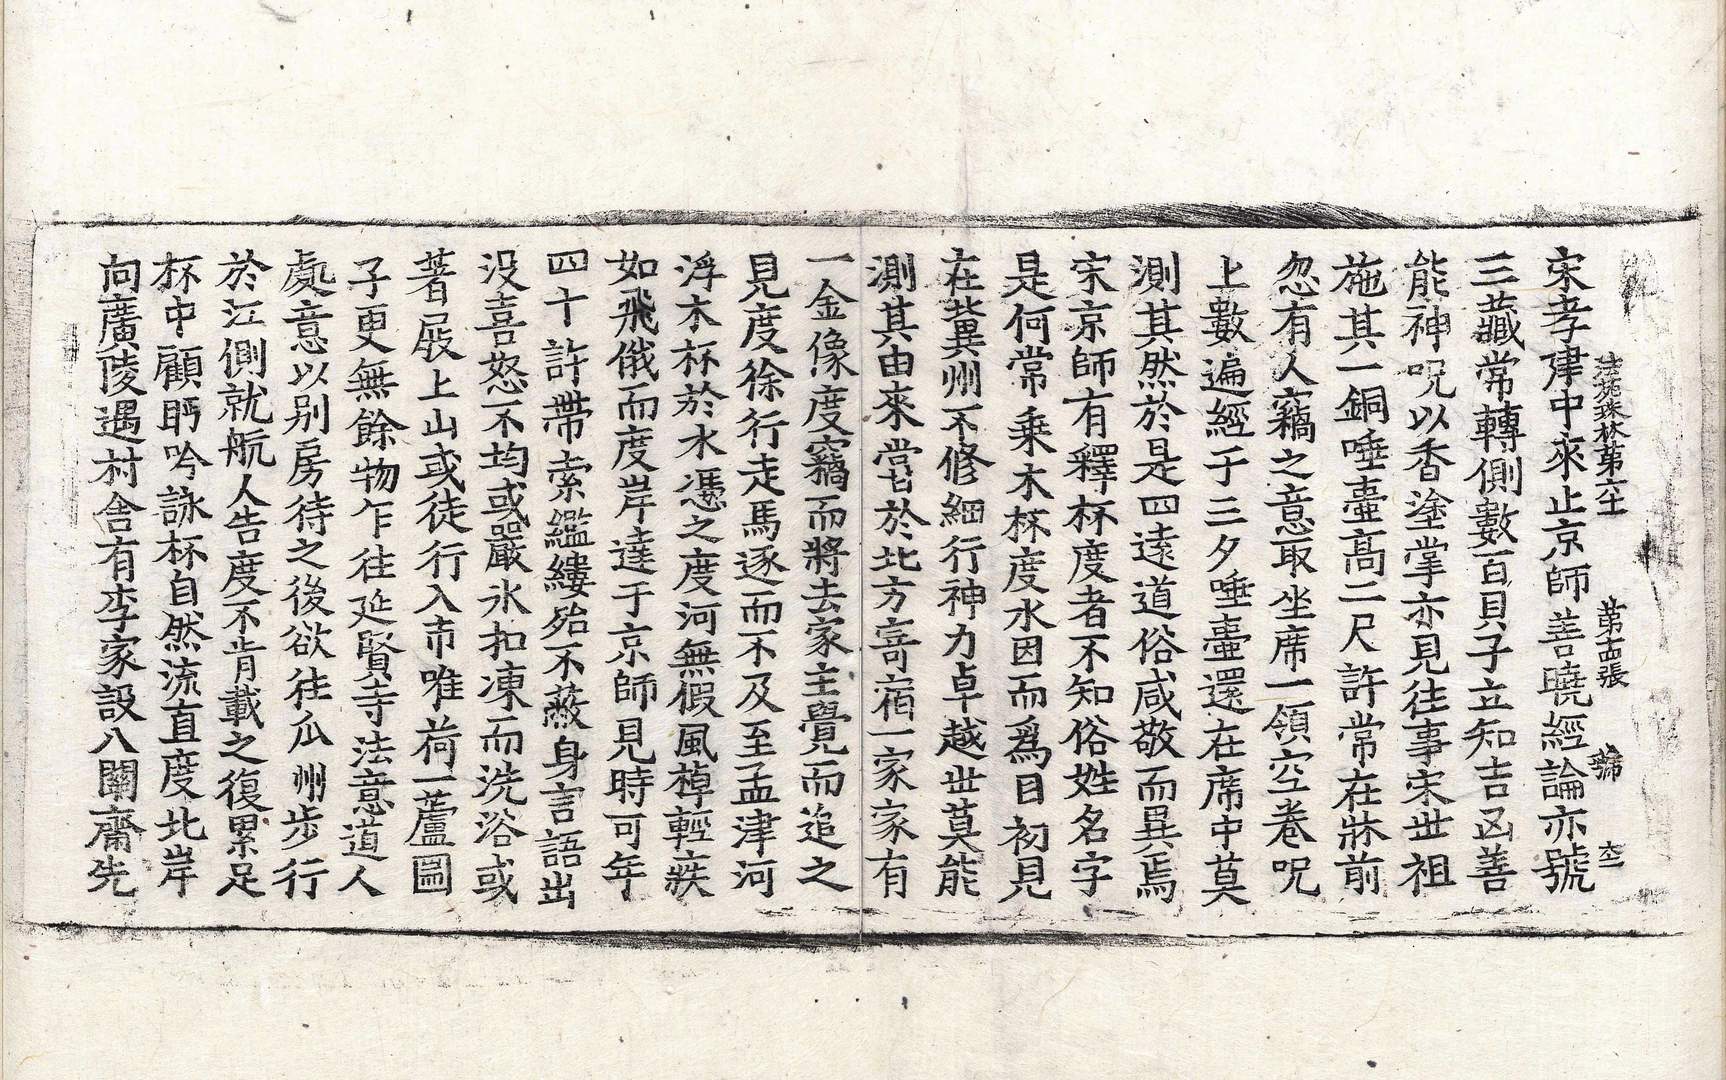 法苑珠林第六十一 第十五張 㝱
宋孝建中來止京師善曉經論亦號
三藏常轉側數百貝子立知吉凶善
能神呪以香塗掌亦見往事宋世祖
施其一銅唾壷髙二尺許常在牀前
忽有人竊之意取坐席一領空卷呪
上數遍經于三夕唾壷還在席中莫
測其然於是四遠道俗咸敬而異焉
宋京師有釋杯度者不知俗姓名字
是何常乗木杯度水因而爲目初見
在兾州不修細行神力卓越世莫能
測其由來甞於北方寄宿一家家有
一金像度竊而將去家主覺而追之
見度徐行走馬逐而不及至孟津河
浮木杯於水凴之度河無假風棹輕疾
如飛俄而度岸達于京師見時可年
四十許帶索繿縷殆不蔽身言語出
没喜怒不均或嚴氷扣凍而洗浴或
著屐上山或徒行入市唯荷一蘆圌
子更無餘物乍往延賢寺法意道人
處意以别房待之後欲往瓜州步行
於江側就航人告度不肯載之復累足
杯中顧眄吟詠杯自然流直度北岸
向廣陵遇村舎有李家設八關齋先